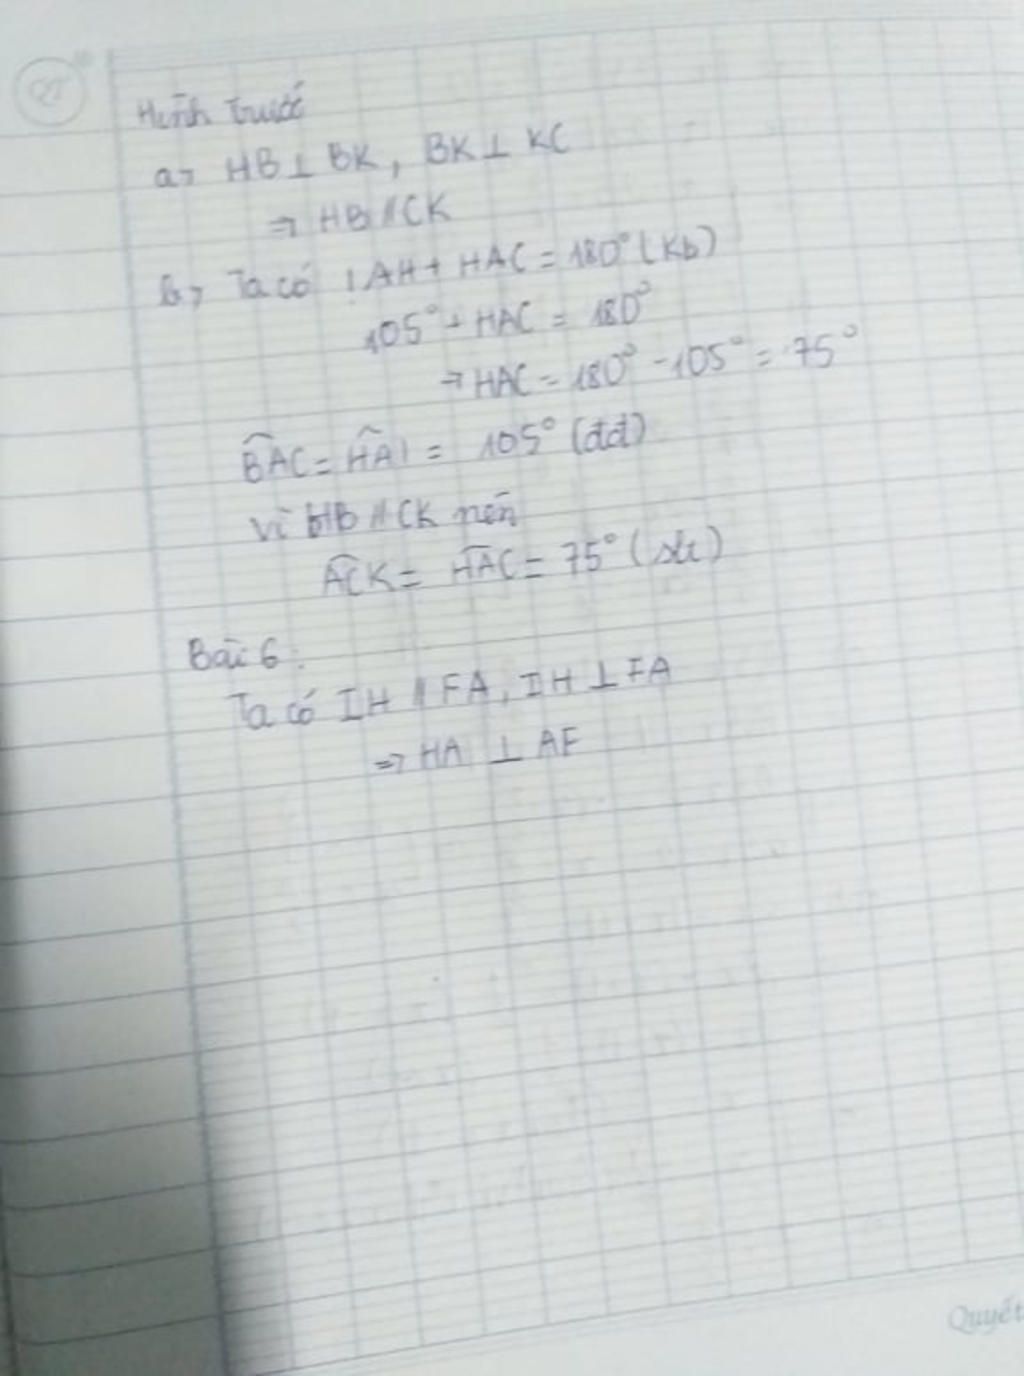 Hình trước
a, HB ⊥ BK, BK ⊥ KC
⇒ HB // CK
b, Ta có IAH + HAC = 180° (kb)
105° + HAC = 180°
→ HAC = 180° - 105° = 75°
B̂AC = ĤAI = 105° (đđ)
Vì HB // CK nên
ÂCK = ĤAC = 75° (slt)
Bài 6:
Ta có IH // FA, IH ⊥ FA
⇒ HA ⊥ AF
Quyết